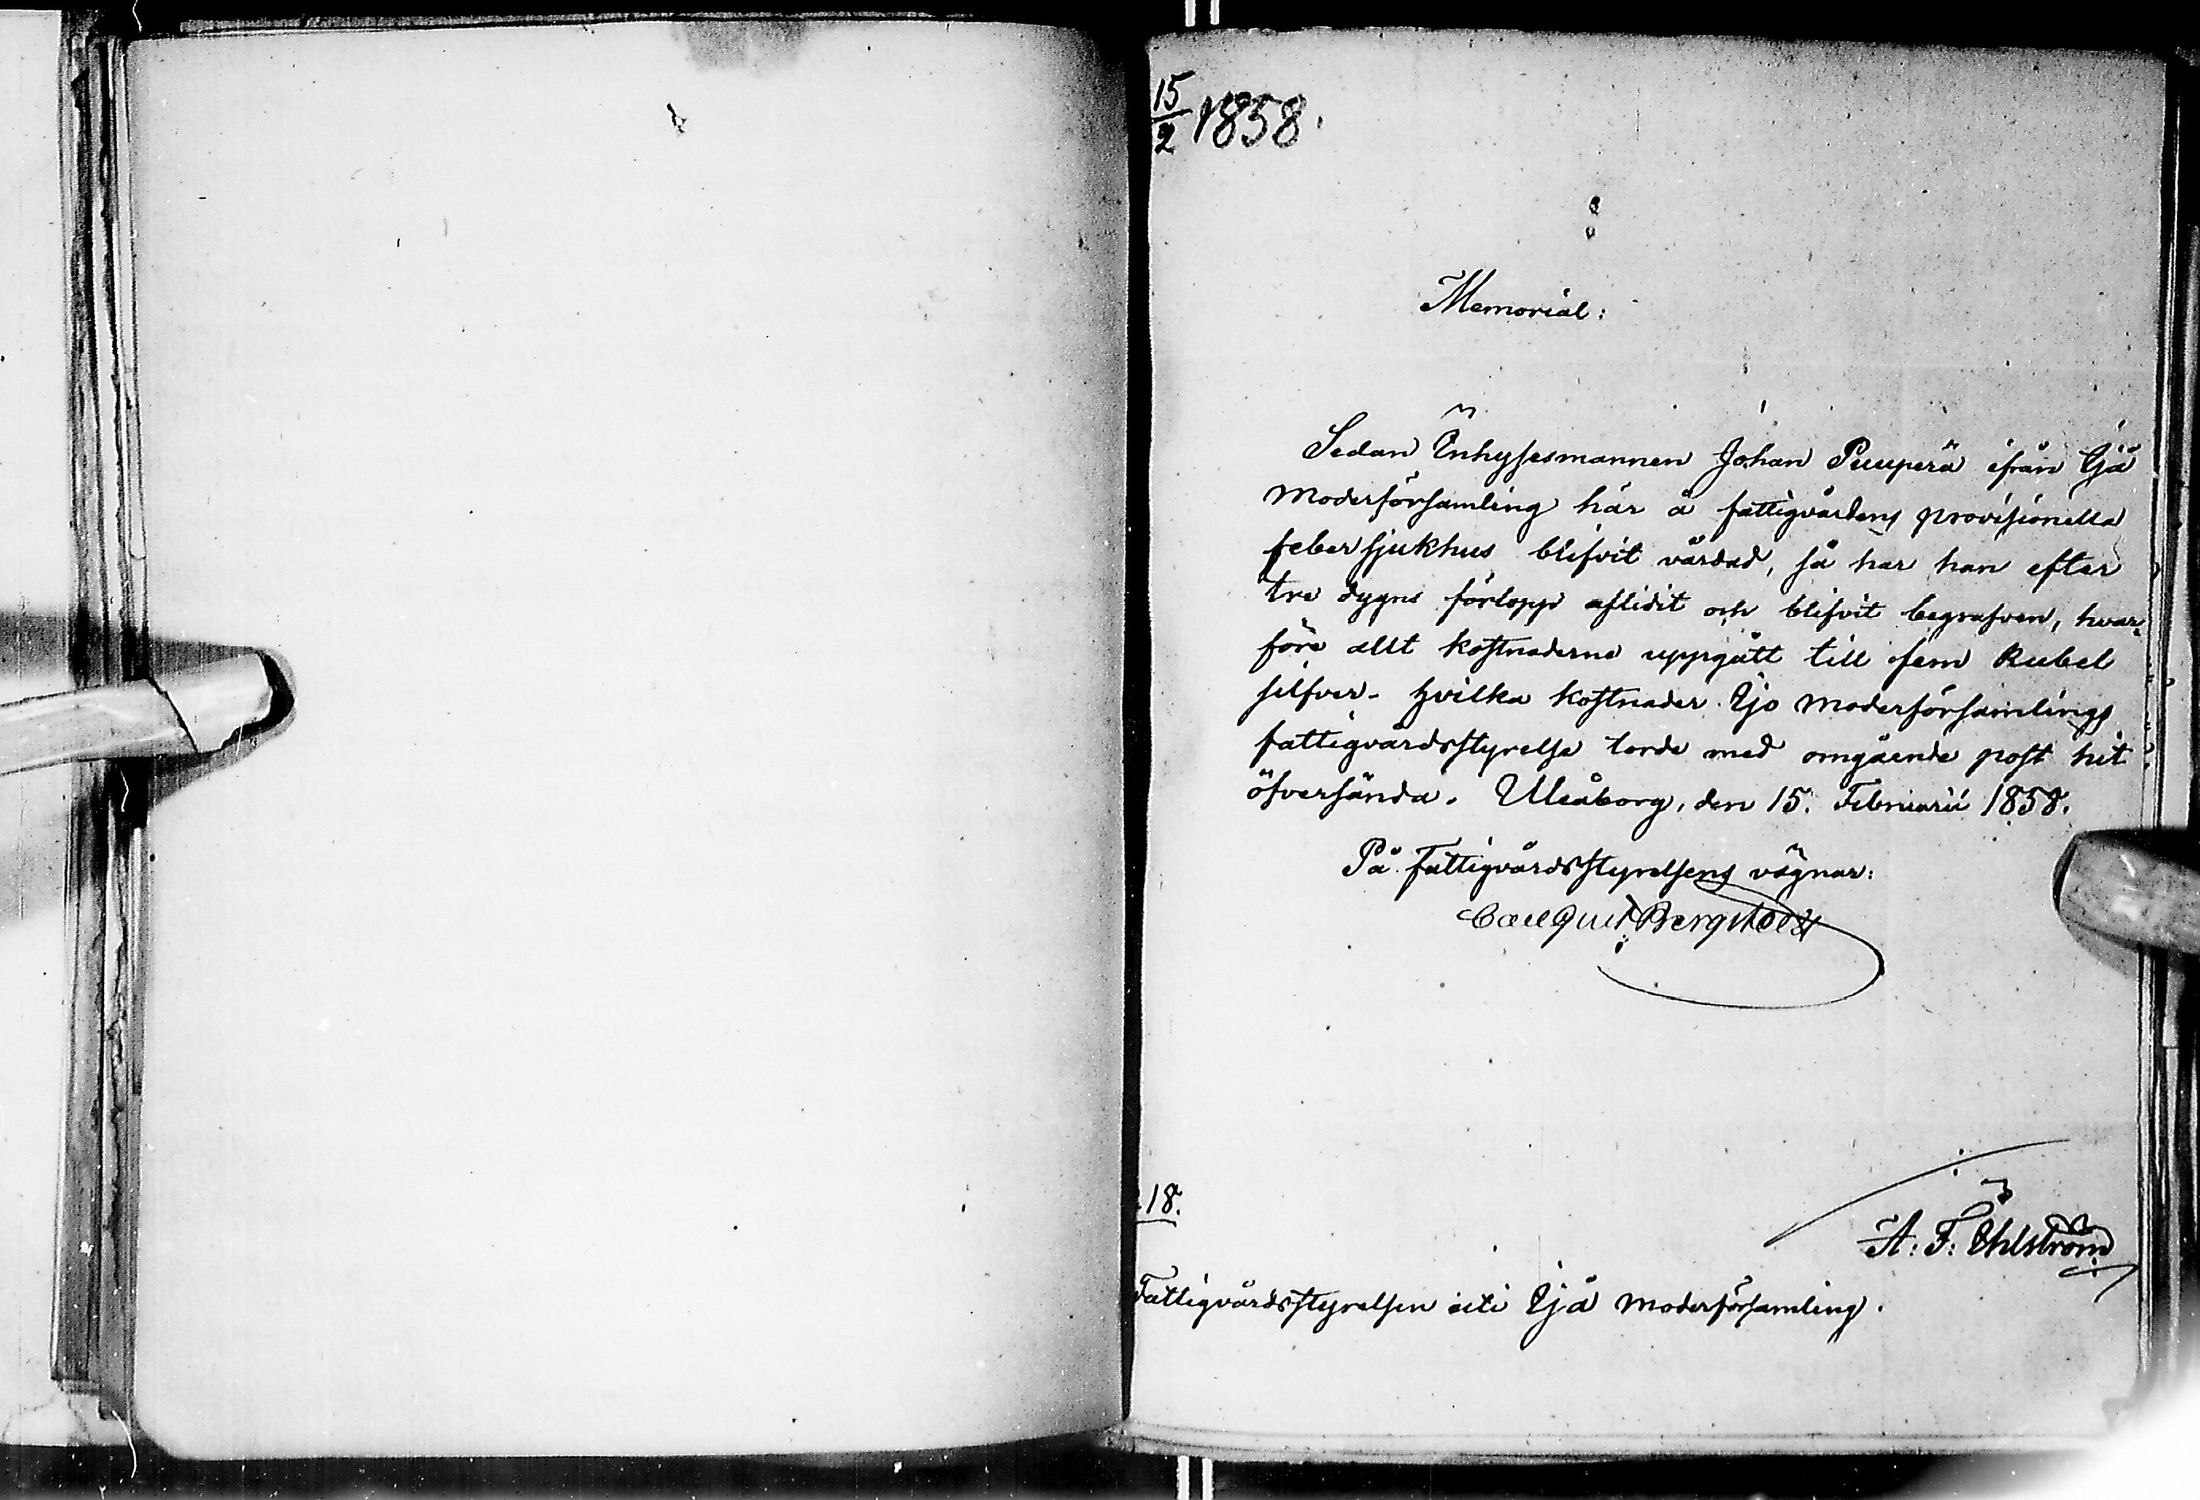 15/2 1858.
Memorial:
Sedan Inhysesmannen Johan Puuperä ifrån Ijå
Moderförsamling här å fattigvårdens provisionella
feber sjukhus blifvit vårdad, så har han efter
tre dygns förlopp aflidit och blifvit begrafven, hvar-
före allt kostnaderne uppgått till fem Rubel
silfver. hvilka kostnader Ijo Moderförsamlings
fattigvårdsstyrelse torde med omgående post hit
öfversända. Uleåborg, den 15. Februarii 1858.
På Fattigvårdsstyrelsens vägnar:
Carl Bergstedt
18.
A: F: Öhlström
Fattigvårdsstyrelsen uti Ijå Moderförsamling.